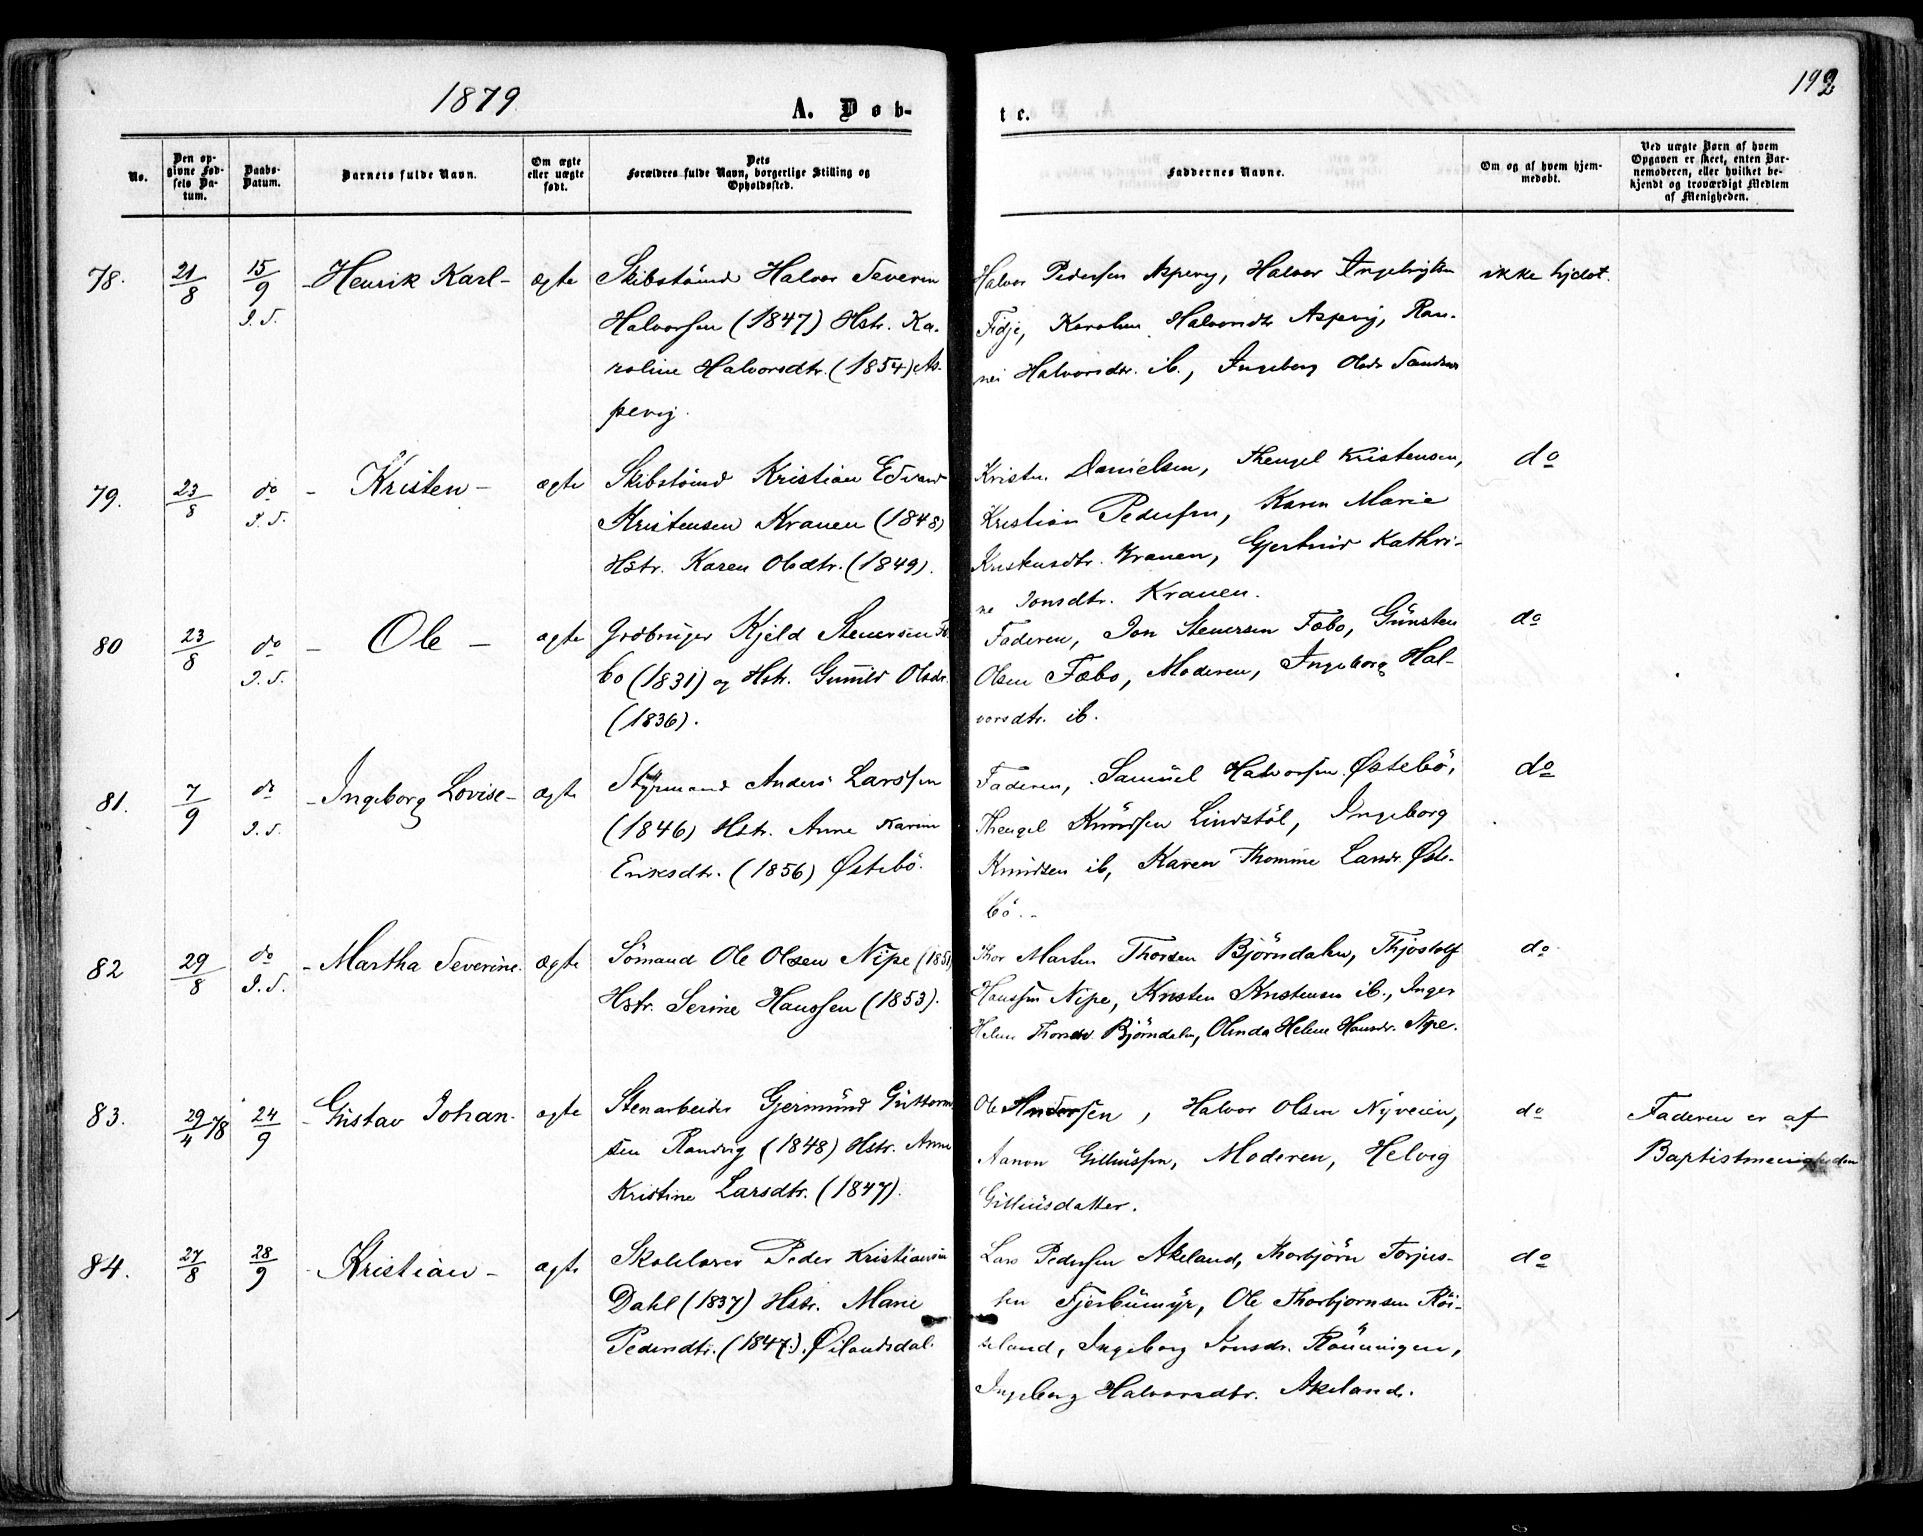 1879.
A. Døb-
te.
192
No.
Den opgivne Fødsels Datum.
Daabs-Datum.
Barnets fulde Navn.
Om ægte eller uægte født.
Dets Forældres fulde Navn, borgerlige Stilling og Opholdssted.
Faddernes Navne.
Om og af hvem hjemmedøbt.
Ved uægte Børn af hvem Opgaven er skeet, enten Barnemoderen, eller hvilket bekjendt og troværdigt Medlem af Menigheden.
78. 21/8 15/9 I.S. - Henrik Karl - ægte
Skibstömd Halvor Severin
Halvorsen (1847) Hstr. Ka-
roline Halvorsdtr. (1854) As-
pevig.
Halvor Pedersen Aspevig, Halvor Ingebrigtsen
Fidje, Karoline Halvorsdtr Aspevig, Ran-
nei Halvorsdtr. ib., Ingeborg Olsdr
ikke hjdøt.
79. 23/8 do I.S. - Kristen - ægte
Skibstömd Kristian Edvard
Kristensen Kranen (1848)
Hstr. Karen Olsdtr. (1849).
Kristen Danielsen, Thengel Kristensen,
Kristian Pedersen, Karen Marie
Kristensdtr. Kranen, Gjertrud Kathri-
ne Jonsdtr. Kranen.
do
80 23/8 do I.S. - Ole - ægte
Grdbruger Kjeld Stenersen Fæ-
bo (1831) og Hstr. Gunild Olsdr.
(1836).
Faderen, Jon Stenersen Fæbo, Günsten
Olsen Fæbo, Moderen, Ingeborg Hal-
vorsdtr. ib.
do
81. 7/9 do I.S. - Ingeborg Lovise - ægte
Styrmand Anders Larssen
(1846) Hstr. Anne Karine
Eriksdtr. (1856) Østebö.
Faderen, Samüel Halvorsen Østebö,
Thengel Knüdsen Lindstöl, Ingeborg
Knüdsen ib, Karen Thomine Larsdr. Øste-
bö.
do
82 29/8 do I.S. - Martha Severine. ægte
Sömand Ole Olsen Nipe (1851)
Hstr. Serine Hanssen (1853).
Thor Martin Thorsen Björndalen, Thjostolf
Hanssen Nipe, Kristen Kristensen ib., Inger
Helene Thorsdr Björndalen, Olinda Helene Hansdr. Nipe.
do
83. 29/4 78 24/9 - Güstav Johan - ægte
Stenarbeider Gjermünd Güttorm-
sen Randvig (1848) Hstr. Anne
Kristine Larsdtr. (1847).
Ole Andersen, Halvor Olsen Nyveien,
Aanon Gilliüssen, Moderen, Helvig
Gilliüsdatter.
do
Faderen er af
Baptistmenigheden
84. 27/8 28/9 - Kristian - ægte
Skolelærer Peder Kristiansen
Dahl (1837) Hstr. Marie
Pedersdtr. (1847.) Øilandsdal.
Lars Pedersen Akeland, Thorbjörn Torjus-
sen Fjerbümyr, Ole Thorbjornsen Röi-
seland, Ingeborg Jonsdr. Rönningen,
Ingeborg Halvorsdtr. Akeland.
do